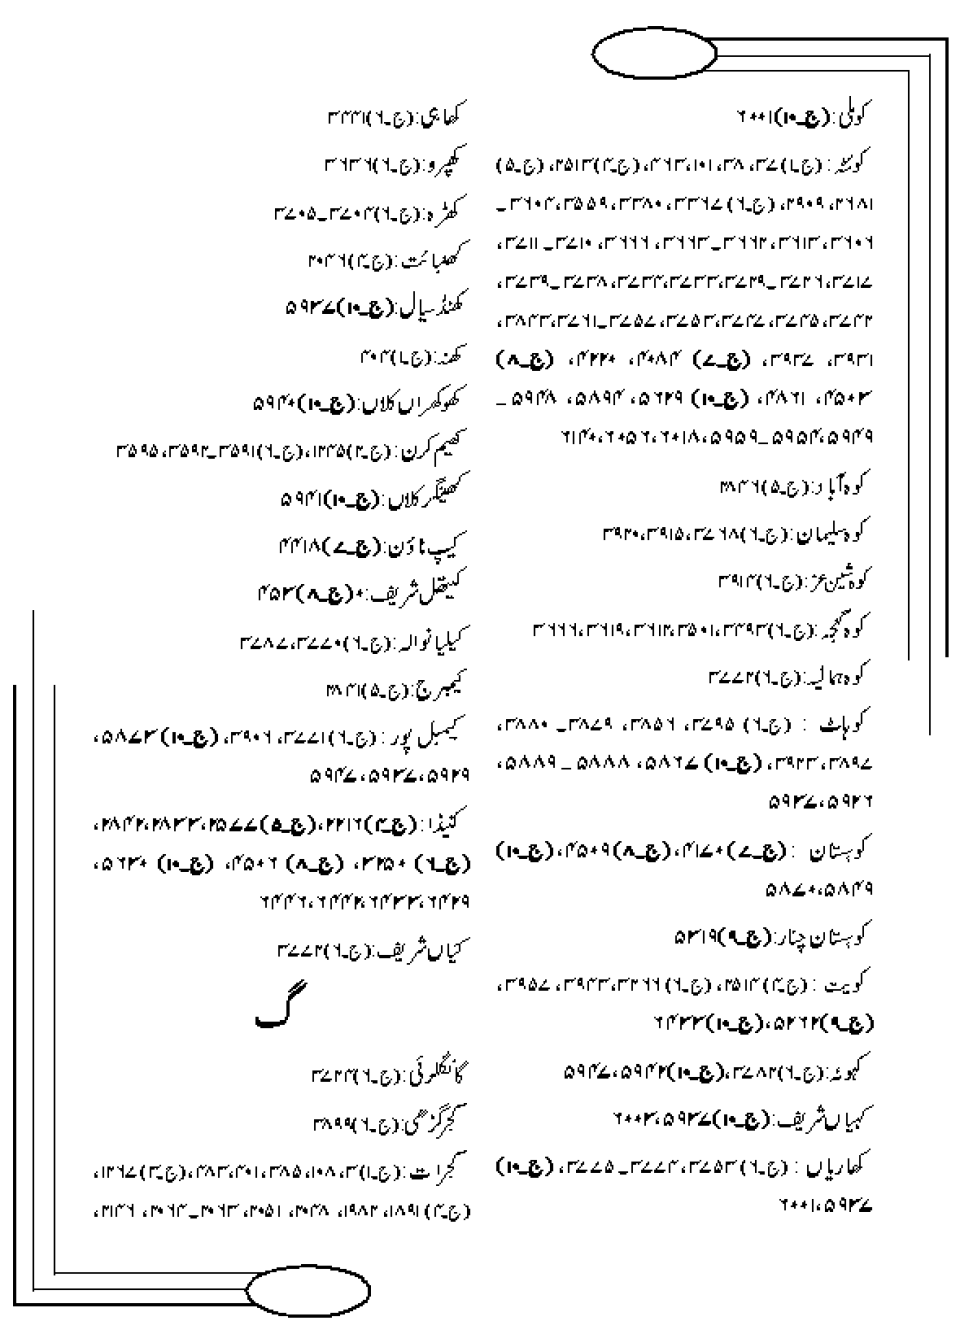 کوٹلی:(ج۔۱۰)۶۰۰۱
کوئٹہ:(ج۔۱)۳۷، ۳۸، ۱۰۱، ۴۶۳، (ج۔۴)۲۵۱۳، (ج۔۵)
۲۶۸۱، ۲۹۰۹، (ج۔۶)۳۳۶۷، ۳۳۸۰، ۳۵۵۹، ۳۶۰۴۔
۳۶۰۶، ۳۶۱۳، ۳۶۶۲۔۳۶۶۳، ۳۶۶۶، ۳۷۱۰۔۳۷۱۱،
۳۷۱۷، ۳۷۲۶۔۳۷۲۹، ۳۷۳۳، ۳۷۳۴، ۳۷۳۸۔۳۷۳۹،
۳۷۴۲، ۳۷۴۵، ۳۷۴۷، ۳۷۵۳، ۳۷۵۷۔۳۷۶۱، ۳۸۴۳،
۳۹۳۱، ۳۹۳۷، (ج۔۷) ۴۰۸۴، ۴۲۲۰، (ج۔۸)
۴۵۰۳، ۴۸۶۱، (ج۔۱۰) ۵۶۲۹، ۵۸۹۴، ۵۹۴۸۔
۵۹۴۹، ۵۹۵۴۔۵۹۵۹، ۶۰۱۸، ۶۰۵۶، ۶۱۴۰
کوہ آباد:(ج۔۵)۲۸۴۶
کوہ سلیمان:(ج۔۶)۳۷۶۸، ۳۹۱۵، ۳۹۲۰
کوہ شین غز:(ج۔۶)۳۹۱۴
کوہ گنجہ:(ج۔۶)۳۴۹۳، ۳۵۰۱، ۳۶۱۲، ۳۶۱۹، ۳۶۶۶
کوہ ہمالیہ:(ج۔۶)۳۷۷۲
کوہاٹ : (ج۔۶) ۳۷۹۵، ۳۸۵۶، ۳۸۷۹۔ ۳۸۸۰،
۳۸۹۷، ۳۹۲۳، (ج۔۱۰) ۵۸۶۷، ۵۸۸۸ ۔ ۵۸۸۹،
۵۹۲۶، ۵۹۳۷
کوہستان : (ج۔۷)۴۱۷۰، (ج۔۸)۴۵۰۹، (ج۔۱۰)
۵۸۴۹، ۵۸۷۰
کوہستان چنار:(ج۔۹)۵۳۱۹
کویت : (ج۔۴)۲۵۱۴، (ج۔۶)۳۲۶۶، ۳۹۴۳، ۳۹۵۷،
(ج۔۹)۵۲۶۲، (ج۔۱۰)۶۴۳۳
کہوٹہ:(ج۔۶)۳۷۸۲، (ج۔۱۰)۵۹۴۲، ۵۹۴۷
کہیاں شریف:(ج۔۱۰)۵۹۳۷، ۶۰۰۳
کھاریاں : (ج۔۶)۳۷۵۳، ۳۷۷۴۔۳۷۷۵، (ج۔۱۰)
۵۹۳۷، ۶۰۰۱
کھابی:(ج۔۶)۳۴۳۱
کھپرو:(ج۔۶)۳۶۳۶
کھڑہ:(ج۔۶)۳۷۰۴۔۳۷۰۵
کھنبائت:(ج۔۴)۲۰۴۶
کھنڈ سیال:(ج۔۱۰)۵۹۳۷
کھنہ:(ج۔۱)۴۰۴
کھوکھراں کلاں:(ج۔۱۰)۵۹۴۰
کھیم کرن:(ج۔۲)۱۲۴۵، (ج۔۶)۳۵۹۱۔۳۵۹۲، ۳۵۹۵
کھینگر کلاں:(ج۔۱۰)۵۹۴۱
کیپ ٹاؤن:(ج۔۷)۴۴۱۸
کیتھل شریف:۰(ج۔۸)۴۵۳
کیلیانوالہ:(ج۔۶)۳۷۷۰، ۳۷۸۷
کیمبرج:(ج۔۵)۲۸۳۱
کیمبل پور : (ج۔۶)۳۷۷۱، ۳۹۰۶، (ج۔۱۰)۵۸۷۳،
۵۹۲۹، ۵۹۳۷، ۵۹۴۷
کنیڈا:(ج۔۴)۲۲۱۶، (ج۔۵)۲۵۷۷، ۲۸۳۳، ۲۸۴۲،
(ج۔۶) ۳۲۵۰، (ج۔۸) ۴۵۰۶، (ج۔۱۰) ۵۶۳۰،
۶۴۲۹، ۶۴۳۳، ۶۴۴۲، ۶۴۴۶
کیاں شریف:(ج۔۶)۳۷۷۲
گ
گانگلوئی:(ج۔۶)۳۷۲۴
گجرگڑھی:(ج۔۶)۳۸۹۹
گجرات:(ج۔۱)۳، ۱۰۸، ۳۸۵، ۴۰۱، ۴۸۳، (ج۔۳)۱۲۶۷،
(ج۔۴)۱۸۹۱، ۱۹۸۲، ۲۰۴۸، ۲۰۵۱، ۲۰۶۳۔۲۰۶۴، ۲۱۴۶،